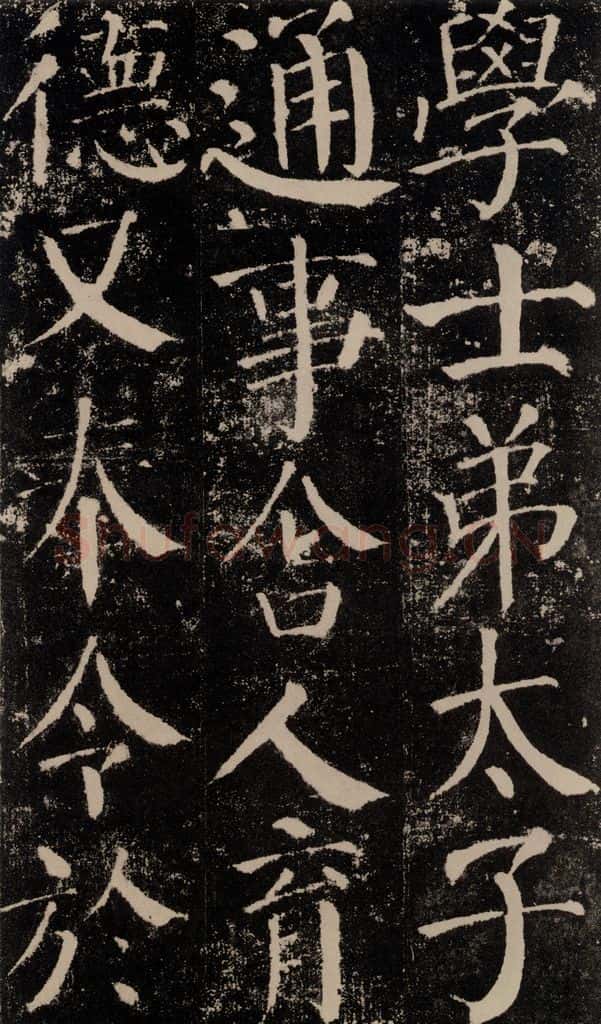 學士弟太子
通事舍人育
德又奉令於
Shufawang.CN